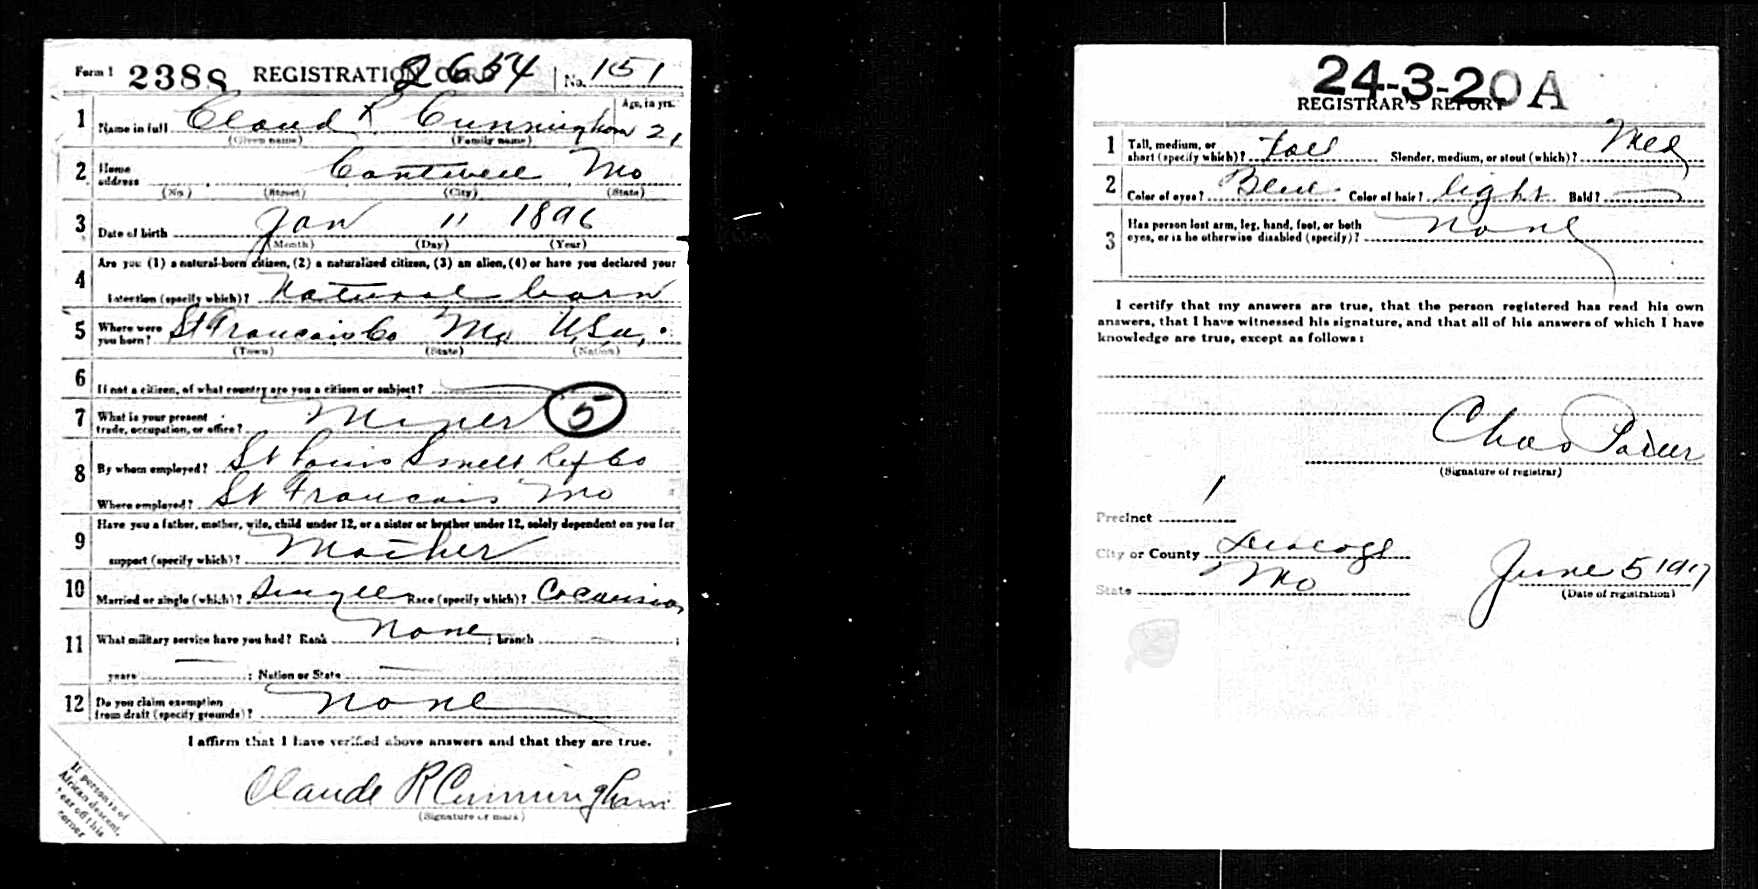 Form 1 2388 REGISTRATION CARD 2654 No. 151
1 Name in full Claud R Cunningham Age, in yrs. 21
(Given name) (Family name)
2 Home address Cantwell Mo
(No.) (Street) (City) (State)
3 Date of birth Jan 11 1896
(Month) (Day) (Year)
4 Are you (1) a natural-born citizen, (2) a naturalized citizen, (3) an alien, (4) or have you declared your
intention (specify which)? Natural born
5 Where were you born? St Francois Co Mo U.S.a.
(Town) (State) (Nation)
6 If not a citizen, of what country are you a citizen or subject?
7 What is your present trade, occupation, or office? Miner 5
8 By whom employed? St Louis Smelt Ref Co
Where employed? St Francois Mo
9 Have you a father, mother, wife, child under 12, or a sister or brother under 12, solely dependent on you for
support (specify which)? Mother
10 Married or single (which)? Single Race (specify which)? Caucasian
11 What military service have you had? Rank None ; branch ;
years ; Nation or State
12 Do you claim exemption from draft (specify grounds)? None
I affirm that I have verified above answers and that they are true.
Claude R Cunningham
(Signature or mark)
If person is of
African descent,
tear off this
corner
24-3-20 A
REGISTRAR'S REPORT
1 Tall, medium, or short (specify which)? Tall Slender, medium, or stout (which)? Med
2 Color of eyes? Blue Color of hair? light Bald?
3 Has person lost arm, leg, hand, foot, or both
eyes, or is he otherwise disabled (specify)? None
I certify that my answers are true, that the person registered has read his own
answers, that I have witnessed his signature, and that all of his answers of which I have
knowledge are true, except as follows:
Chas
(Signature of registrar)
Precinct 1
City or County
State Mo
June 5 1917
(Date of registration)